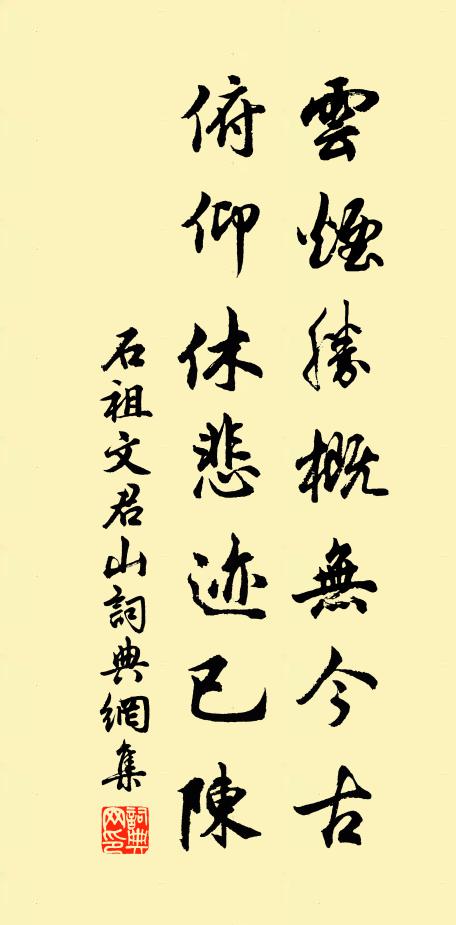 雲煙勝概無今古
俯仰休悲迹已陳
石祖文君山詞典網集
詞典網印